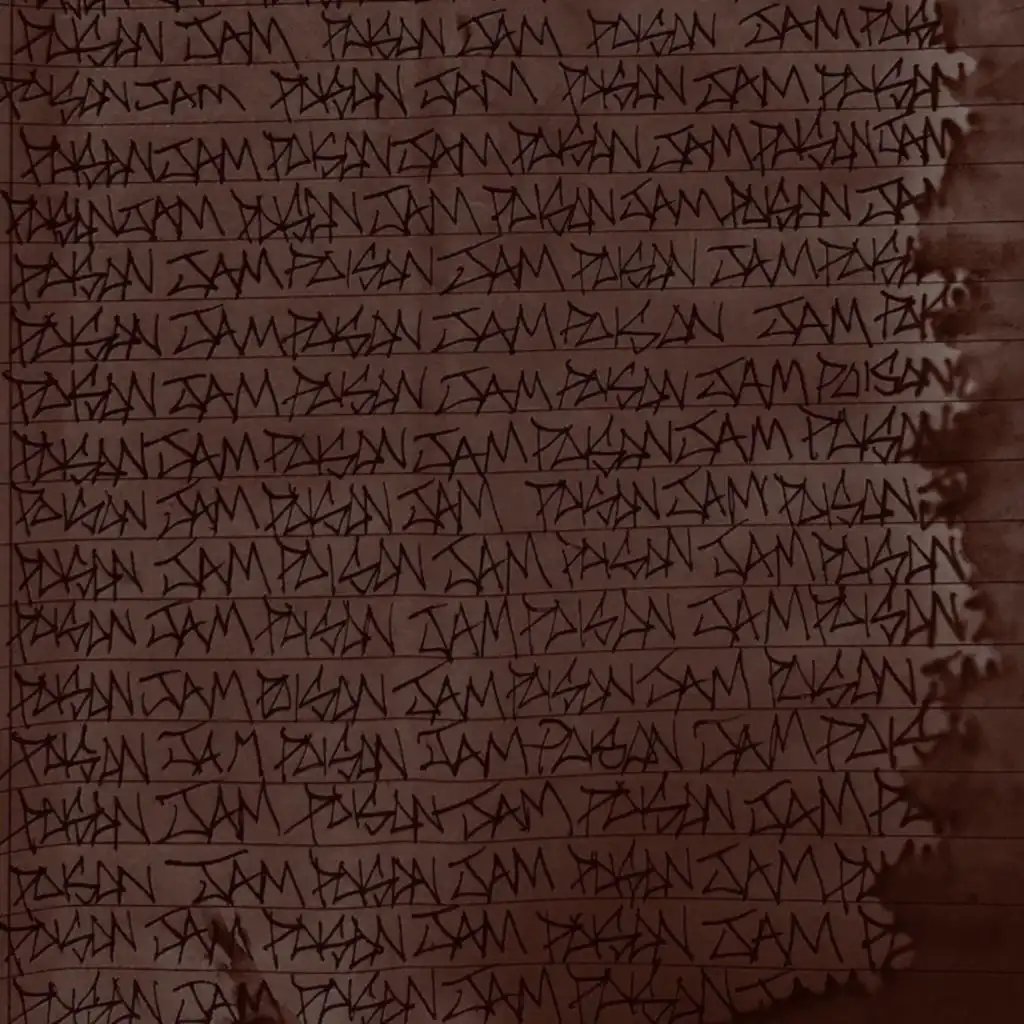 POISON JAM POISON JAM POISON JAM POISO
POISON JAM POISON JAM POISON JAM POISON
POISON JAM POISON JAM POISON JAM POISON JAN
POISON JAM POISON JAM POISON JAM POISON JA
POISON JAM POISON JAM POISON JAM POISO
POISON JAM POISON JAM POISON JAM POI
POISON JAM POISON JAM POISON JAM POISON
POISON JAM POISON JAM POISON JAM POISON
POISON JAM POISON JAM POISON JAM POISON
POISON JAM POISON JAM POISON JAM POISON
POISON JAM POISON JAM POISON JAM POISON
POISON JAM POISON JAM POISON JAM POISON
POISON JAM POISON JAM POISON JAM POIS
POISON JAM POISON JAM POISON JAM P
POISON JAM POISON JAM POISON JAM PO
POISON JAM POISON JAM POISON JAM P
POISON JAM POISON JAM POISON J